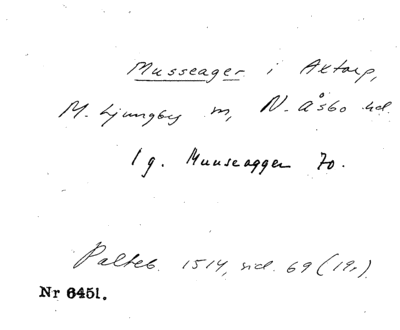 Musseager i Axtorp,
M. Ljungby sn, N. Åsbo hd.
1 g. Muuseagger Jo.
Palteb. 1514, sid. 69 (19r).
Nr 6451.